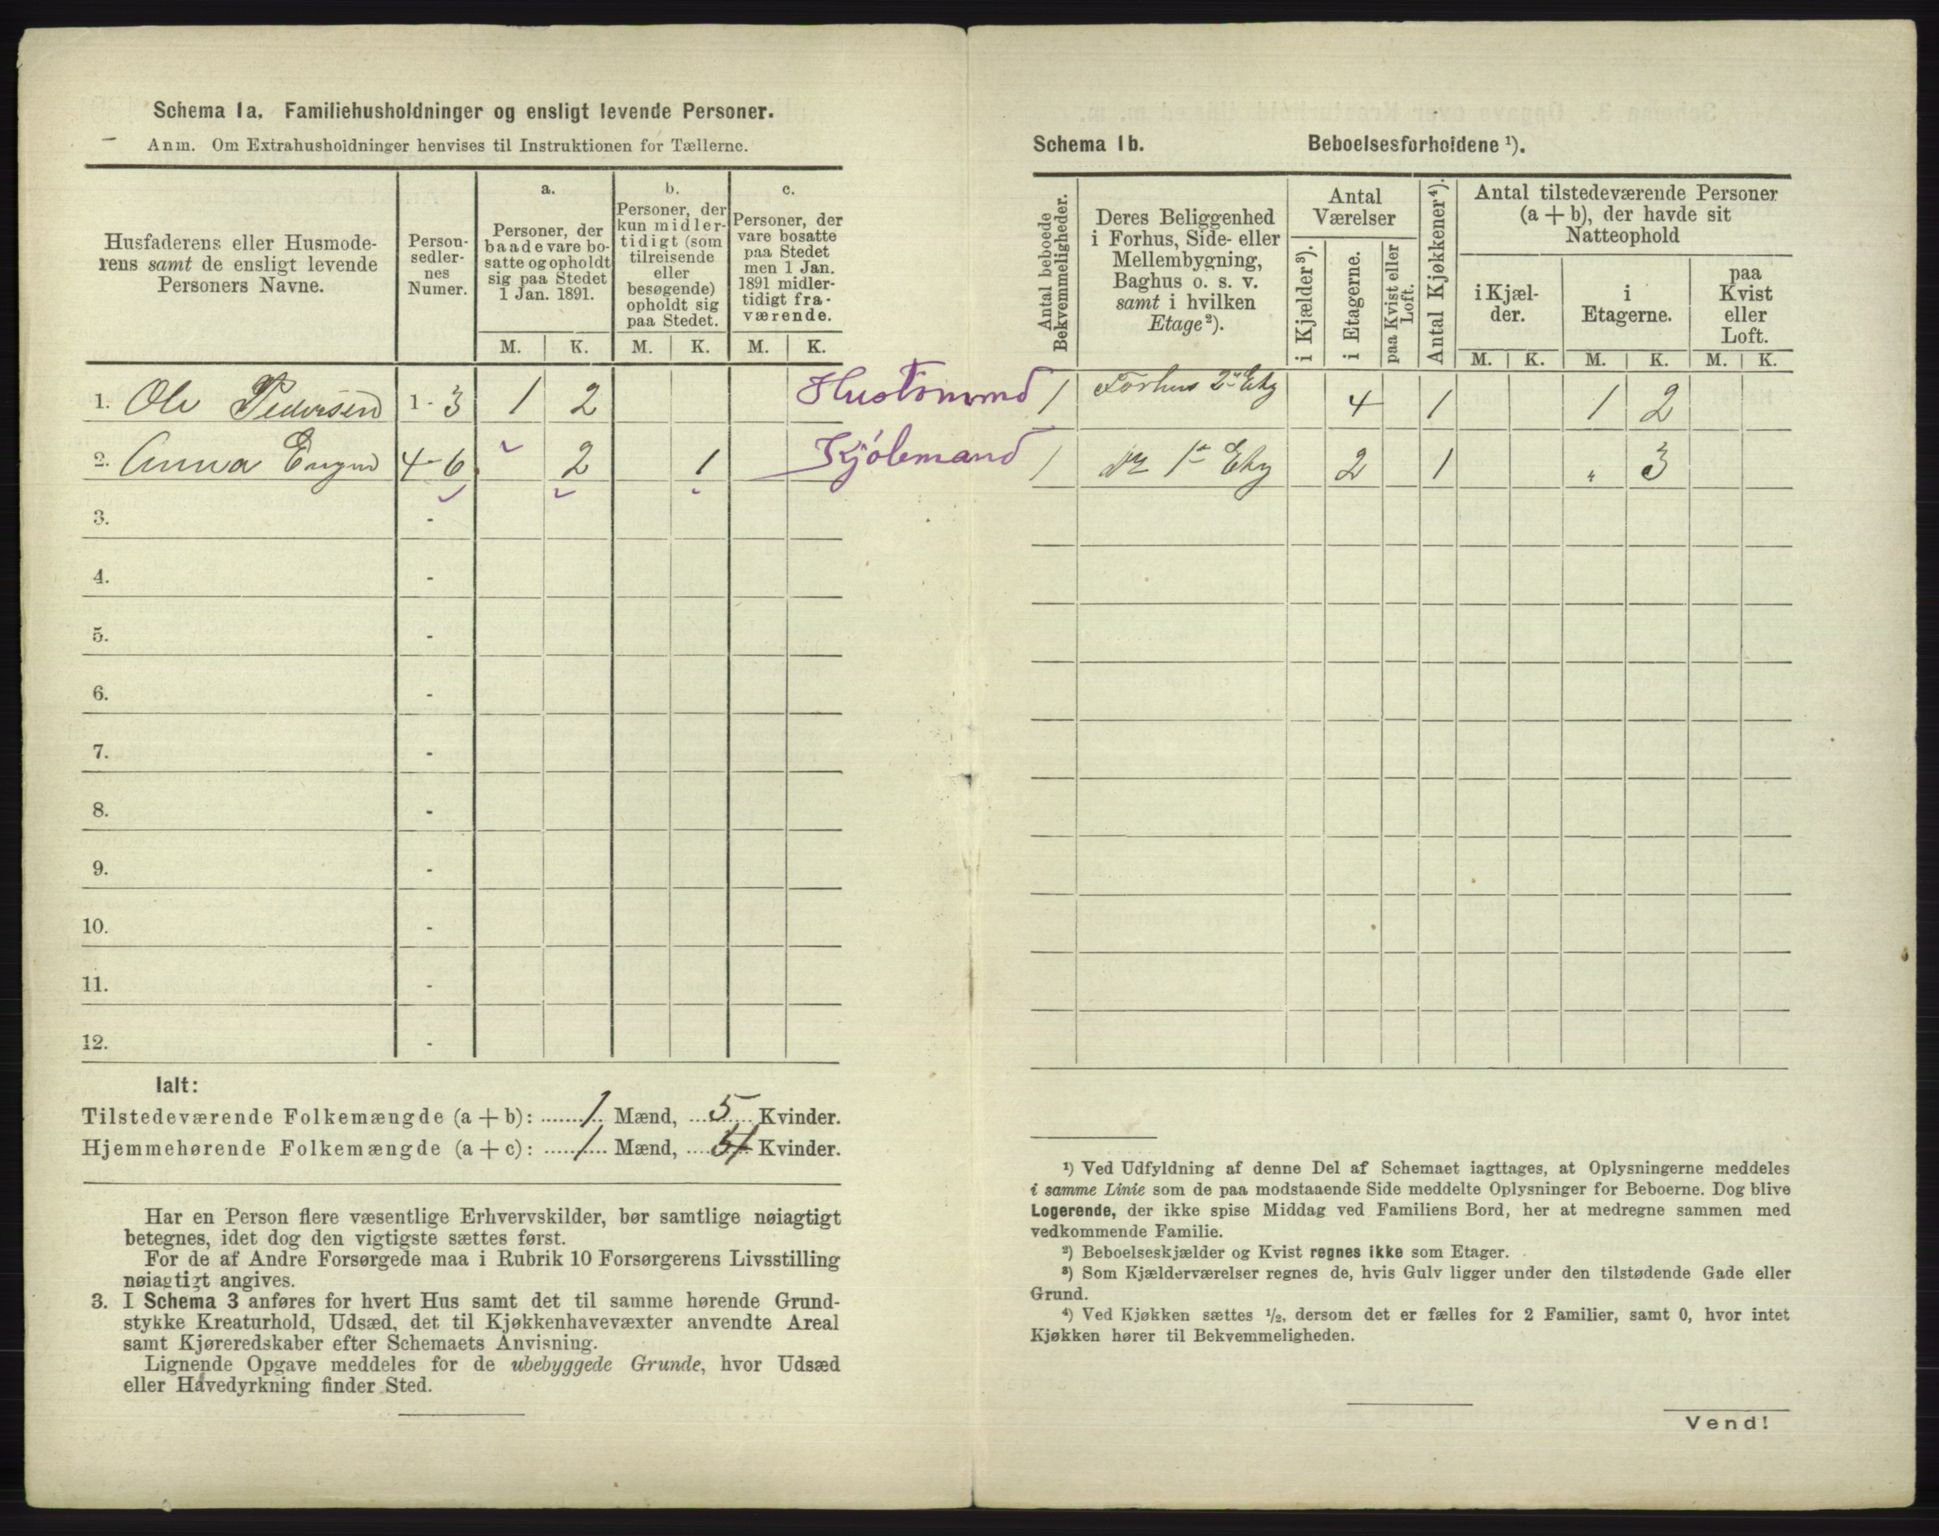 Schema 1a. Familiehusholdninger og ensligt levende Personer.
Anm. Om Extrahusholdninger henvises til Instruktionen for Tællerne.
Husfaderens eller Husmode-
rens samt de ensligt levende
Personers Navne.
Person-
sedler-
nes
Numer.
a.
Personer, der
baade vare bo-
satte og opholdt
sig paa Stedet
1 Jan. 1891.
b.
Personer, der
kun midler-
tidigt (som
tilreisende
eller
besøgende)
opholdt sig
paa Stedet.
c.
Personer, der
vare bosatte
paa Stedet
men 1 Jan.
1891 midler-
tidigt fra-
værende.
M. K. M. K. M. K.
1. Ole Pedersen 1-3 1 2
2. Anna 4-6 2 1
3. -
4. -
5. -
6. -
7. -
8. -
9. -
10. -
11. -
12. -
Ialt:
Tilstedeværende Folkemængde (a + b): 1 Mænd, 5 Kvinder.
Hjemmehørende Folkemængde (a + c): 1 Mænd, 4 Kvinder.
Har en Person flere væsentlige Erhvervskilder, bør samtlige nøiagtigt
betegnes, idet dog den vigtigste sættes først.
For de af Andre Forsørgede maa i Rubrik 10 Forsørgerens Livsstilling
nøiagtigt angives.
3. I Schema 3 anføres for hvert Hus samt det til samme hørende Grund-
stykke Kreaturhold, Udsæd, det til Kjøkkenhavevæxter anvendte Areal
samt Kjøreredskaber efter Schemaets Anvisning.
Lignende Opgave meddeles for de ubebyggede Grunde, hvor Udsæd
eller Havedyrkning finder Sted.
Schema 1b. Beboelsesforholdene ¹).
Antal beboede
Bekvemmeligheder.
Deres Beliggenhed
i Forhus, Side- eller
Mellembygning,
Baghus o. s. v.
samt i hvilken
Etage²).
Antal
Værelser
i Kjælder³).
i Etagerne.
paa Kvist eller
Loft.
Antal Kjøkkener⁴).
Antal tilstedeværende Personer
(a + b), der havde sit
Natteophold
i Kjæl-
der.
i
Etagerne.
paa
Kvist
eller
Loft.
M. K. M. K. M. K.
1 Forhus 2 Etg 4 1 1 2
Kjøbmand 1 1 Etg 2 1 " 3
¹) Ved Udfyldning af denne Del af Schemaet iagttages, at Oplysningerne meddeles
i samme Linie som de paa modstaaende Side meddelte Oplysninger for Beboerne. Dog blive
Logerende, der ikke spise Middag ved Familiens Bord, her at medregne sammen med
vedkommende Familie.
²) Beboelseskjælder og Kvist regnes ikke som Etager.
³) Som Kjælderværelser regnes de, hvis Gulv ligger under den tilstødende Gade eller
Grund.
⁴) Ved Kjøkken sættes ½, dersom det er fælles for 2 Familier, samt 0, hvor intet
Kjøkken hører til Bekvemmeligheden.
Vend!